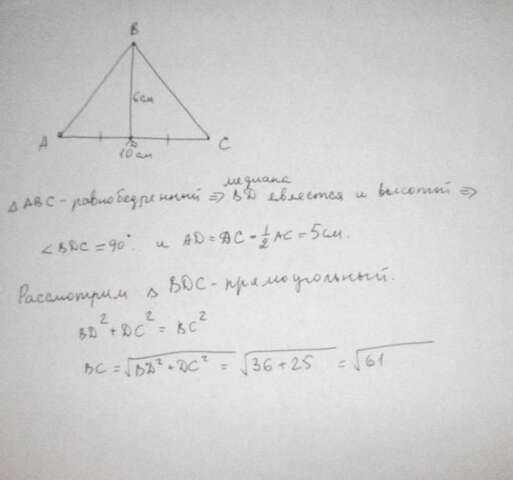 B
6см
A
D
C
10см
медиана
△ ABC - равнобедренный ⇒ BD является и высотой ⇒
∠BDC = 90° и AD = DC = 1/2 AC = 5см.
Рассмотрим △ BDC - прямоугольный.
BD² + DC² = BC²
BC = √(BD² + DC²) = √(36 + 25) = √61